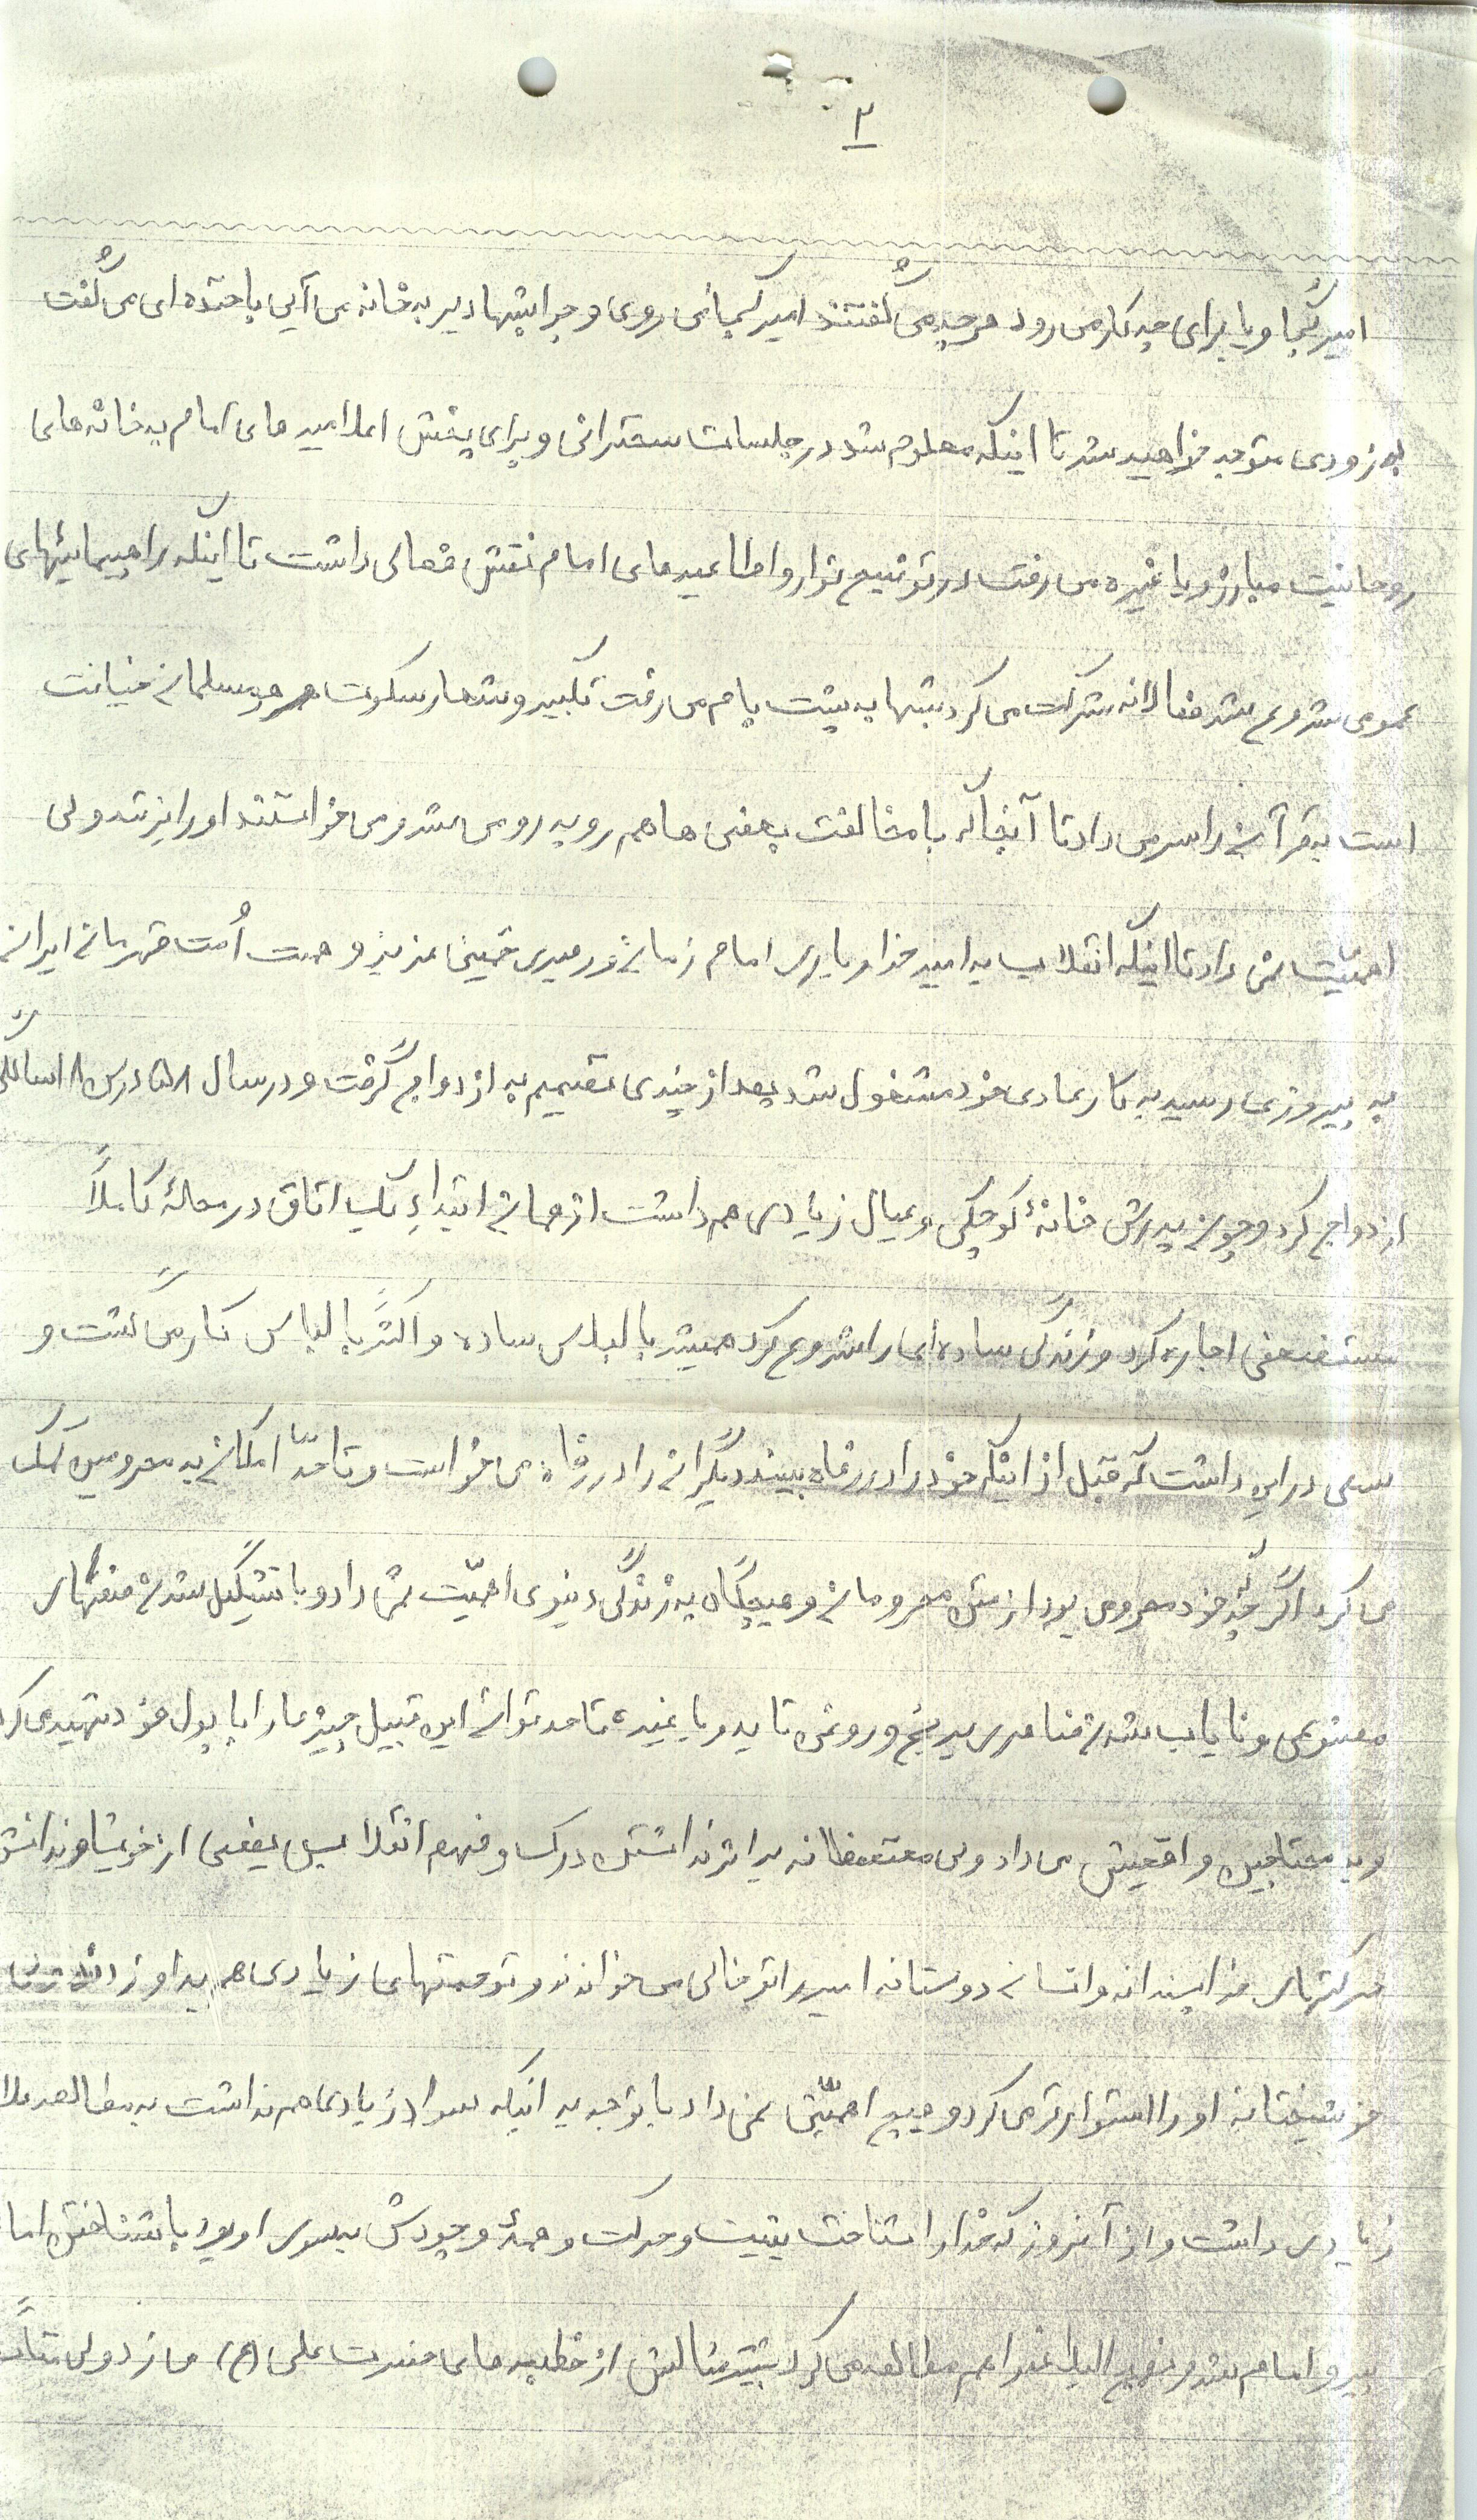 ۲
امیر کجا و یا برای چه کار می رود هر چه می گفتند امیر کجا می روی و چرا شبها دیر به خانه می آیی با خنده ای می گفت
به زودی متوجه خواهید شد تا اینکه معلوم شد در جلسات سخنرانی و برای پخش اعلامیه های امام به خانه های
روحانیت مبارز و یا غیره می رفت در توضیع نوار و اطلاعیه های امام نقش فعالی داشت تا اینکه راهپیمائیهای
عمومی شروع شد فعالانه شرکت می کرد شبها به پشت بام می رفت تکبیر و شعار سکوت هر مسلمان خیانت
است به قرآن را سر می داد تا آنجا که با مخالفت بعضی ها هم رو به رو می شد و می خواستند او را بزنند ولی
اهمیّت نمی داد تا اینکه انقلاب به امید خدا و یاری امام زمان و رهبری خمینی عزیز و همت اُمت قهرمان ایران
به پیروزی رسید به کار عادی خود مشغول شد بعد از چندی تصمیم به ازدواج گرفت و در سال ۵۸ در سن ۱۸ سالگی
ازدواج کرد و چون پدرش خانهٔ کوچکی و عیال زیادی هم داشت از همان ابتداء یک اتاق در محلهٔ کاملاً
مستضعفی اجاره کرد و زندگی ساده ای را شروع کرد همیشه با لباس ساده و اکثراً با لباس کار می گشت و
سعی در این داشت که قبل از اینکه خود را در رفاه ببیند دیگران را در رفاه می خواست و تا حدّ امکان به محرومین کمک
می کرد اگر چه خود محرومی بود از متن محرومان و هیچگاه به زندگی دنیوی اهمیّت نمی داد و با تشکیل شدن صفهای
مصنوعی و نایاب شدن عناصری برنج و روغن تاید و یا غیره تا حد توان این قبیل چیزها را با پول خود تهیه می کرد
و به محتاجین واقعیش می داد ولی متعصفانه بر اثر نداشتن درک و فهم انقلابیش بعضی از خویشاوندانش
حرکتهای خداپسندانه و انسان دوستانه امیر را تو خالی می خواندند و تهمتهای زیادی هم به او زدند ولی
خوشبختانه او را استوارتر می کرد و هیچ اهمیّتی نمی داد با توجه به اینکه سواد زیادی هم نداشت به مطالعه علاقه
زیادی داشت و از آنروز که خدا را شناخت نیت و حرکت و همهٔ وجودش بسوی او بود با شناختن امام
پیرو امام شد و نهج البلاغه را هم مطالعه می کرد بیشتر مثالش از خطبه های حضرت علی (ع) می زد ولی متأ